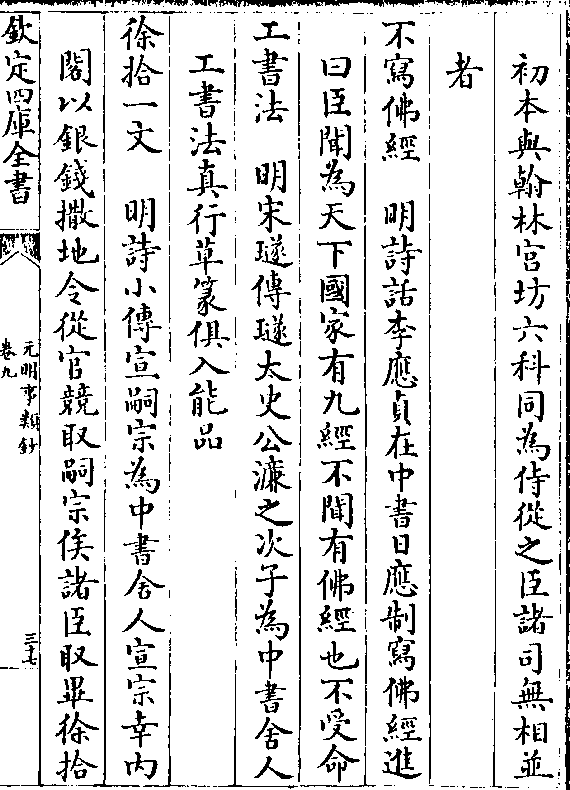 初本與翰林宫坊六科同為侍從之臣諸司無相並
者
不寫佛經　明詩話李應貞在中書日應制寫佛經進
曰臣聞為天下國家有九經不聞有佛經也不受命
工書法　明宋璲傳璲太史公濂之次子為中書舍人
工書法真行草篆俱入能品
徐拾一文　明詩小傳宣嗣宗為中書舍人宣宗幸内
閣以銀錢撒地令從官競取嗣宗俟諸臣取畢徐拾
欽定四庫全書
元明事類鈔
卷九
三七